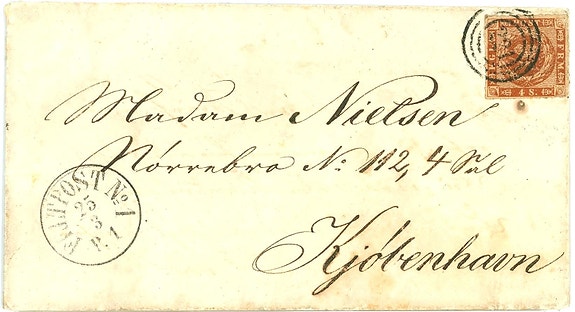 Madam Nielsen
Nörrebro No: 112, 4 Sal
Kjöbenhavn
FODPOST No 1
23
3
P. 1
4 S.
F R M